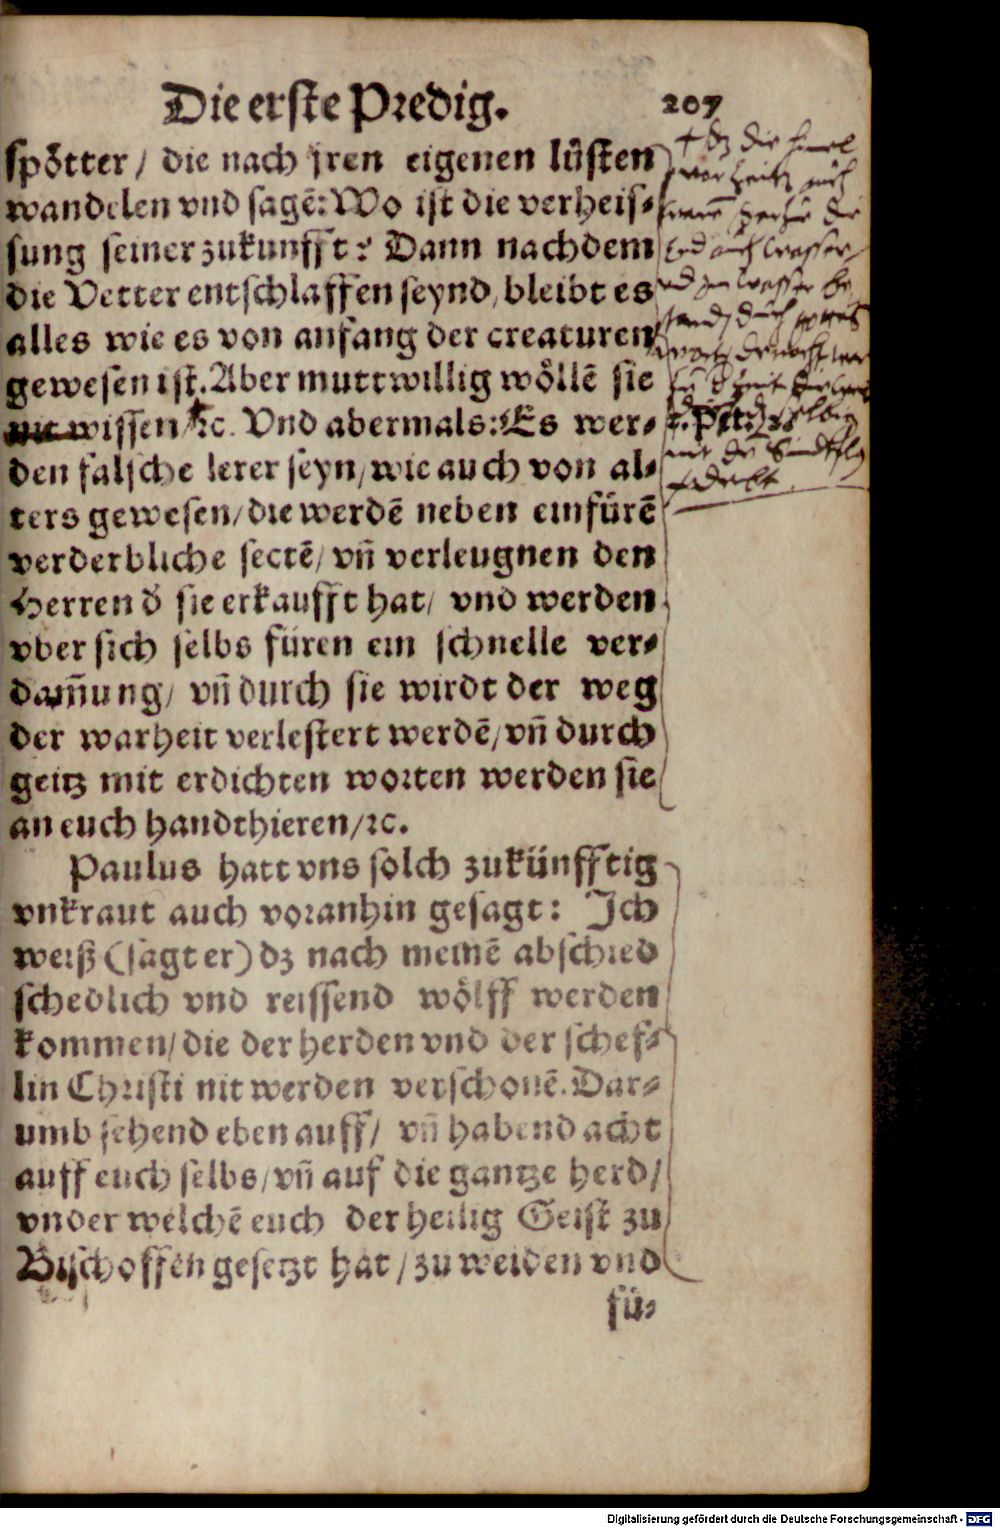 Die erste Predig. 207
spötter/ die nach jren eigenen lüsten
wandelen vnd sagē: Wo ist die verheis-
sung seiner zukunfft? Dann nachdem
die Vetter entschlaffen seynd, bleibt es
alles wie es von anfang der creaturen
gewesen ist. Aber muttwillig wöllē sie
nit wissen/ ꝛc. Vnd abermals: Es wer-
den falsche lerer seyn/ wie auch von al-
ters gewesen/ die werdē neben einfürē
verderbliche sectē/ vñ verleugnen den
Herren d̕ sie erkaufft hat/ vnd werden
vber sich selbs füren ein schnelle ver-
dam̄nung/ vñ durch sie wirdt der weg
der warheit verlestert werdē/ vñ durch
geitz mit erdichten worten werden sie
an euch handthieren/ ꝛc.
Paulus hatt vns solch zukünfftig
vnkraut auch voranhin gesagt: Ich
weiß (sagt er) dz nach meinē abschied
schedlich vnd reissend wölff werden
kommen/ die der herden vnd der schef-
lin Christi nit werden verschonē. Dar-
umb sehend eben auff/ vñ habend acht
auff euch selbs/ vñ auf die gantze herd/
vnder welchē euch der heilig Geist zu
Bischoffen gesetzt hat/ zu weiden vnd
fü-
dz die himel
vor zeitē auch
die
Erd auß wasser/
vnd im wasser be
durch
wort
2. Pet. 2.
mit der Sündtflu
Digitalisierung gefördert durch die Deutsche Forschungsgemeinschaft - DFG